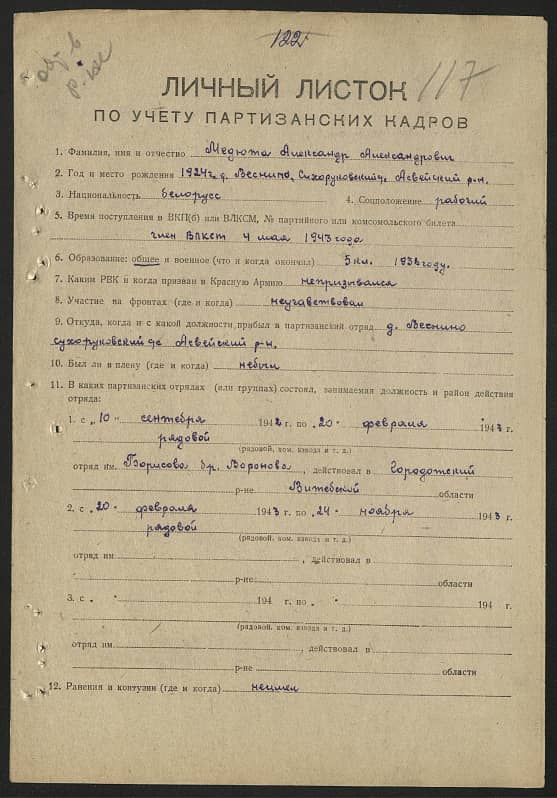 122
117
ЛИЧНЫЙ ЛИСТОК
ПО УЧЕТУ ПАРТИЗАНСКИХ КАДРОВ
1. Фамилия, имя и отчество Медюта Александр Александрович
2. Год и место рождения 1924 г. д. Веснино, Сухоруковский Асвейский р-н.
3. Национальность белорусс 4. Соцположение рабочий
5. Время поступления в ВКП(б) или ВЛКСМ, № партийного или комсомольского билета
член ВЛКСМ 4 мая 1943 года
6. Образование: общее и военное (что и когда окончил) 5 кл. 1936 году.
7. Каким РВК и когда призван в Красную Армию непризывался
8. Участие на фронтах (где и когда) неучавствовал
9. Откуда, когда и с какой должности, прибыл в партизанский отряд д. Веснино
Сухоруковский Асвейский р-н.
10. Был ли в плену (где и когда) небыл
11. В каких партизанских отрядах (или группах) состоял, занимаемая должность и район действия
отряда:
1. с „10" сентября 1942 г. по „20" февраля 1943 г.
рядовой
(рядовой, ком. взвода и т. д.)
отряд им. Борисова бр. Воронова, действовал в Городокский
р-не Витебской области
2. с „20" февраля 1943 г. по „24" ноября 1943 г.
рядовой
(рядовой, ком. взвода и т. д.)
отряд им. , действовал в
р-не области
3. с „ " 194 г. по „ " 194 г.
(рядовой, ком. взвода и т. д.)
отряд им. , действовал в
р-не области
12. Ранения и контузии (где и когда) неимел